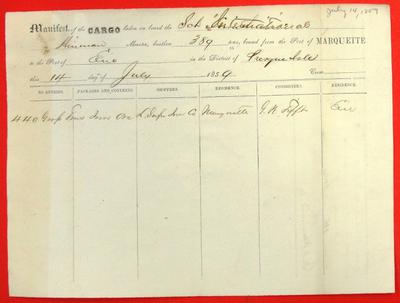 July 14, 1859
Manifest of the CARGO laden on board the Sch International
Hinman Master, burthen 389 tons, bound from the Port of MARQUETTE
to the Port of Erie in the District of Presque Isle
this 14 day of July 1859.
NO. ENTRIES. PACKAGES AND CONTENTS. SHIPPERS. RESIDENCE. CONSIGNEES. RESIDENCE.
440 Gross Tons Iron Ore L. Supr Iron Co Marquette Erie